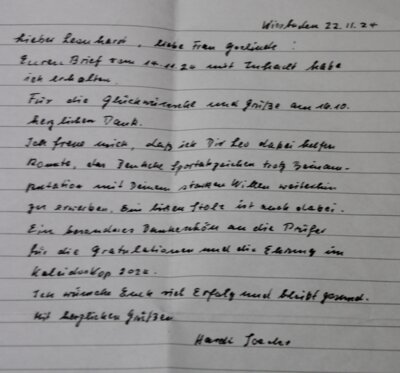 Wiesbaden 22.11.24
Lieber Leonhard, liebe Frau Gerlinde!
Euren Brief vom 14.11.24 mit Inhalt habe
ich erhalten.
Für die Glückwünsche und Grüße am 16.10.
herzlichen Dank.
Ich freue mich, daß ich Dir Leo dabei helfen
konnte, das Deutsche Sportabzeichen trotz Beinam-
putation mit Deinem starken Willen weiterhin
zu erwerben. Ein bißchen Stolz ist auch dabei.
Ein besonderes Dankeschön an die Prüfer
für die Gratulationen und die Ehrung im
Kaleidoskop 2024.
Ich wünsche Euch viel Erfolg und bleibt gesund.
Mit herzlichen Grüßen
Hardi